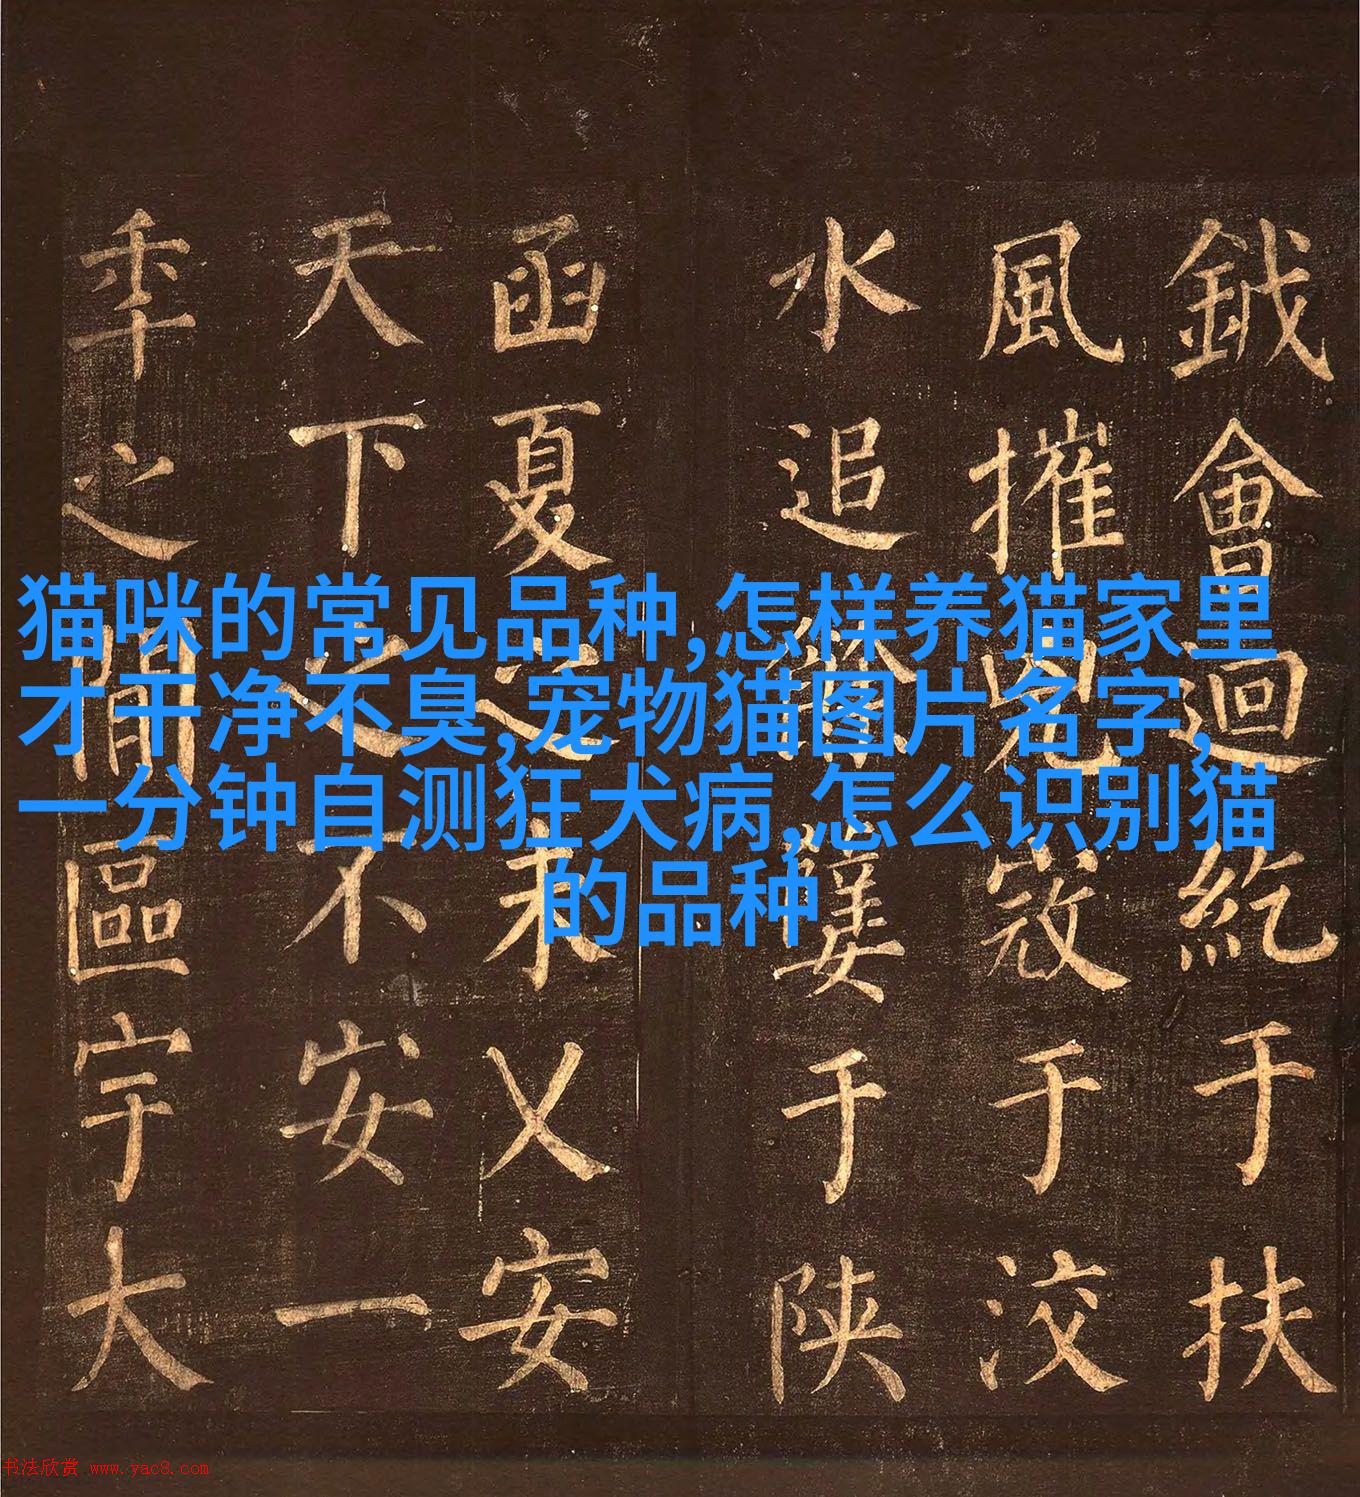 猫咪的常见品种,怎样养猫家里
才干净不臭,宠物猫图片名字,
一分钟自测狂犬病,怎么识别猫
的品种
鉞會迴紇于扶
風摧兇寇于洨
水追餘孽于陝
函夏之未乂安
天下之不安一
秊之間區宇大
书法欣赏 www.yac8.com